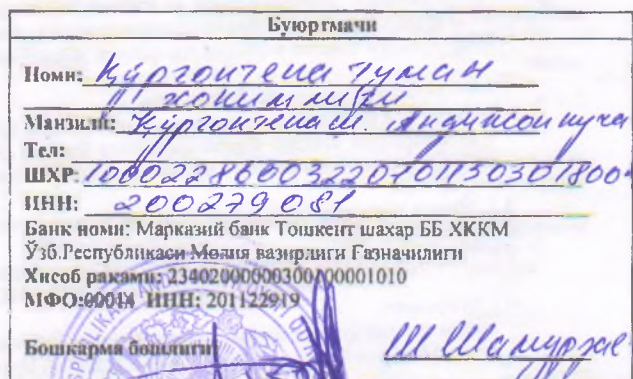 Буюртмачи
Номи: Қўрғонтепа туман
ҳокимлиги
Манзили: Қўрғонтепа ш. Андижон куча
Тел:
ШХР:
ИНН: 200279081
Банк номи: Марказий банк Тошкент шахар ББ ХККМ
Ўзб.Республикаси Молия вазирлиги Ғазначилиги
Хисоб раками: 23402000000300100001010
МФО:00014 ИНН: 201122919
Бошкарма бошлиги
Ш